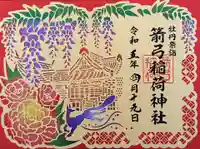 牡丹祭詣
箭弓稲荷神社
令和五年四月十九日